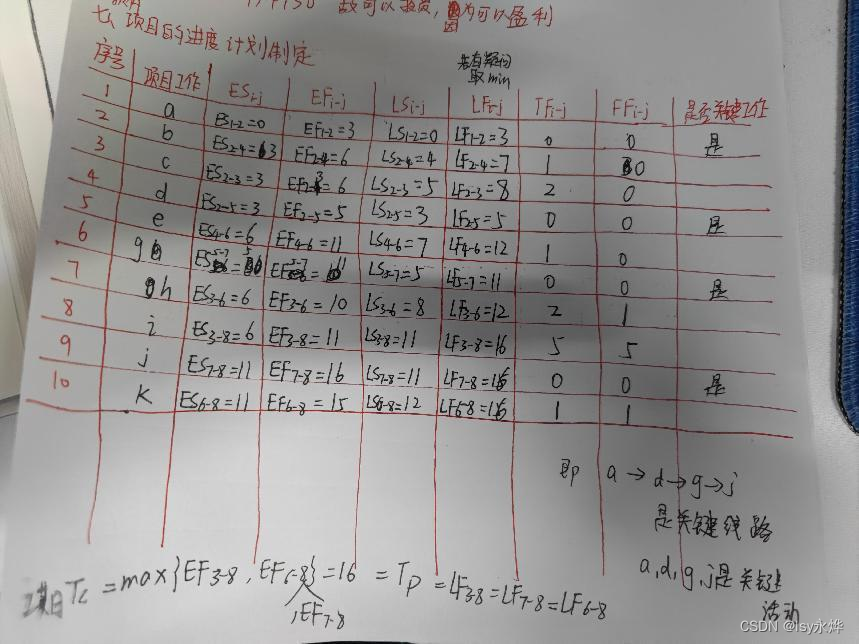 故可以投资,为可以盈利
七、项目的进度计划制定
若有疑问
取min
序号 项目工作 ESi-j EFi-j LSi-j LFi-j TFi-j FFi-j 是否关键工作
1 a ES1-2=0 EF1-2=3 LS1-2=0 LF1-2=3 0 0 是
2 b ES2-4=3 EF2-4=6 LS2-4=4 LF2-4=7 1 0
3 c ES2-3=3 EF2-3=6 LS2-3=5 LF2-3=8 2 0
4 d ES2-5=3 EF2-5=5 LS2-5=3 LF2-5=5 0 0 是
5 e ES4-6=6 EF4-6=11 LS4-6=7 LF4-6=12 1 0
6 g ES5-7=5 EF5-7=11 LS5-7=5 LF5-7=11 0 0 是
7 h ES3-6=6 EF3-6=10 LS3-6=8 LF3-6=12 2 1
8 i ES3-8=6 EF3-8=11 LS3-8=11 LF3-8=16 5 5
9 j ES7-8=11 EF7-8=16 LS7-8=11 LF7-8=16 0 0 是
10 k ES6-8=11 EF6-8=15 LS6-8=12 LF6-8=16 1 1
即 a→d→g→j
是关键线路
a,d,g,j是关键
活动
项目Tc=max{EF3-8,EF6-8}=16=Tp=LF3-8=LF7-8=LF6-8
,EF7-8
CSDN @lsy永烨